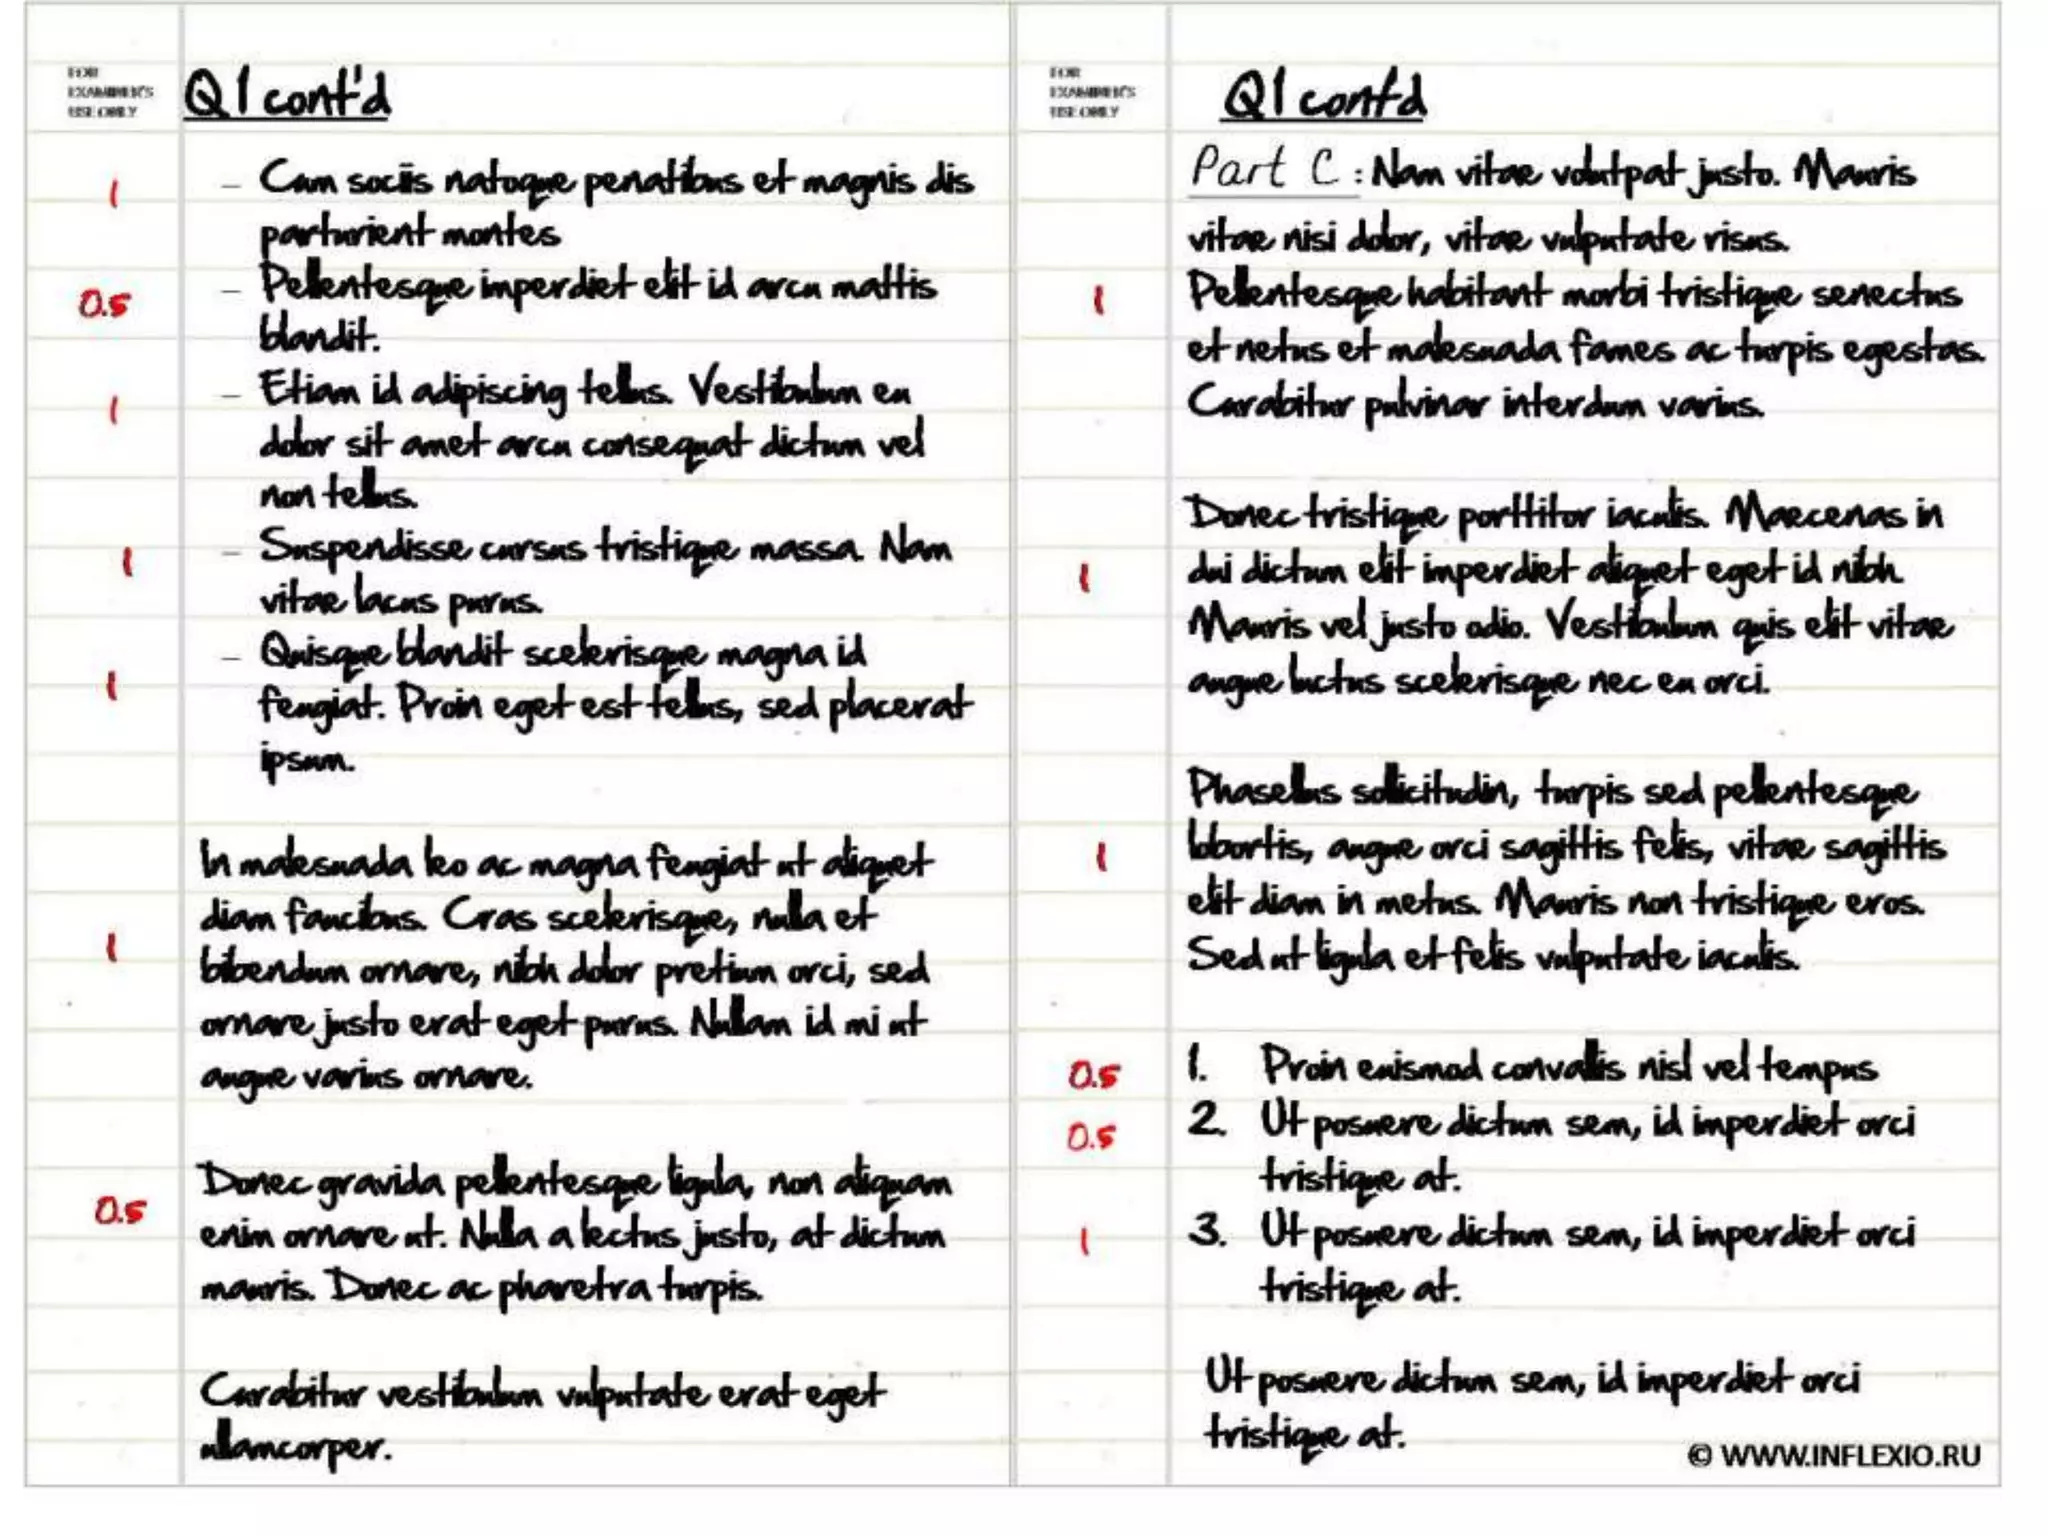 FOR
EXAMINER'S
USE ONLY
Q1 cont'd
1
– Cum sociis natoque penatibus et magnis dis
parturient montes
0.5
– Pellentesque imperdiet elit id arcu mattis
blandit.
1
– Etiam id adipiscing tellus. Vestibulum eu
dolor sit amet arcu consequat dictum vel
non tellus.
1
– Suspendisse cursus tristique massa. Nam
vitae lacus purus.
1
– Quisque blandit scelerisque magna id
feugiat. Proin eget est tellus, sed placerat
ipsum.
In malesuada leo ac magna feugiat ut aliquet
diam faucibus. Cras scelerisque, nulla et
1
bibendum ornare, nibh dolor pretium orci, sed
ornare justo erat eget purus. Nullam id mi ut
augue varius ornare.
Donec gravida pellentesque ligula, non aliquam
0.5
enim ornare ut. Nulla a lectus justo, at dictum
mauris. Donec ac pharetra turpis.
Curabitur vestibulum vulputate erat eget
ullamcorper.
FOR
EXAMINER'S
USE ONLY
Q1 cont'd
Part C : Nam vitae volutpat justo. Mauris
vitae nisi dolor, vitae vulputate risus.
1
Pellentesque habitant morbi tristique senectus
et netus et malesuada fames ac turpis egestas.
Curabitur pulvinar interdum varius.
Donec tristique porttitor iaculis. Maecenas in
1
dui dictum elit imperdiet aliquet eget id nibh.
Mauris vel justo odio. Vestibulum quis elit vitae
augue luctus scelerisque nec eu orci.
Phasellus sollicitudin, turpis sed pellentesque
1
lobortis, augue orci sagittis felis, vitae sagittis
elit diam in metus. Mauris non tristique eros.
Sed ut ligula et felis vulputate iaculis.
0.5
1. Proin euismod convallis nisl vel tempus
0.5
2. Ut posuere dictum sem, id imperdiet orci
tristique at.
1
3. Ut posuere dictum sem, id imperdiet orci
tristique at.
Ut posuere dictum sem, id imperdiet orci
tristique at.
© WWW.INFLEXIO.RU